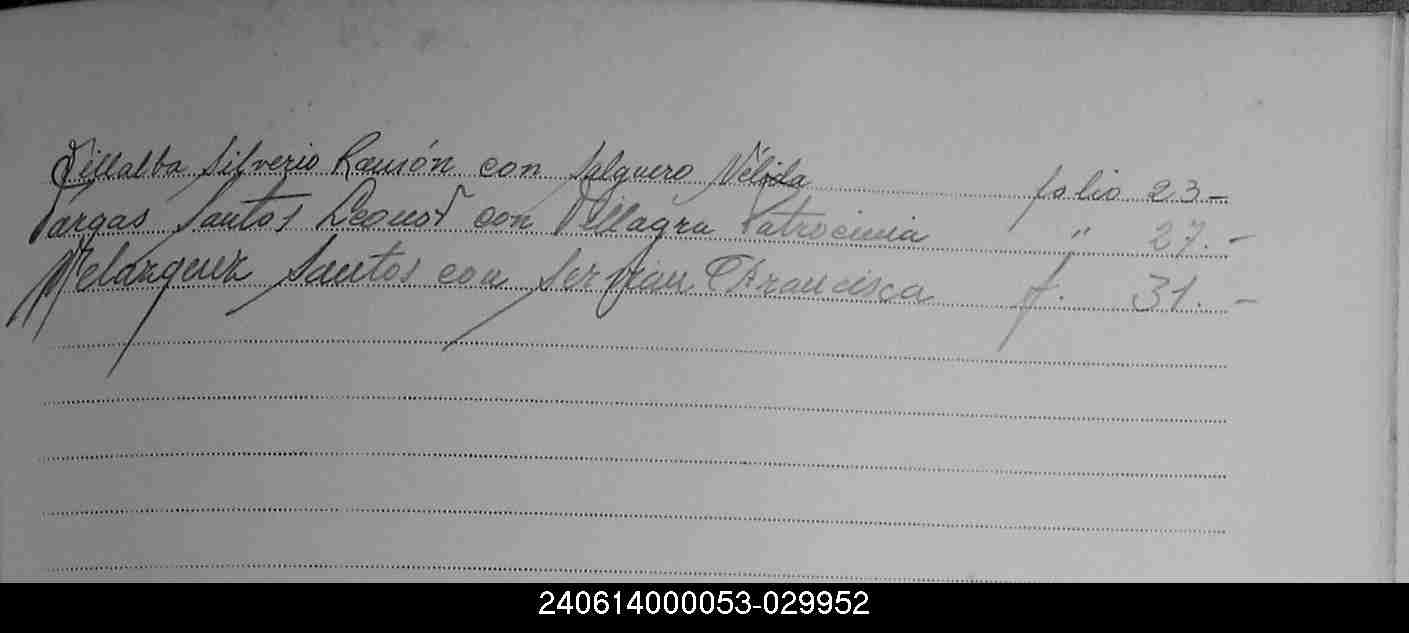 Villalba Silverio Ramón con Salguero Nélida folio 23-
Vargas Santos Leonor con Villagra Patrocinia " 27.-
Velazquez Santos con Servian Francisca f. 31.-
240614000053-029952